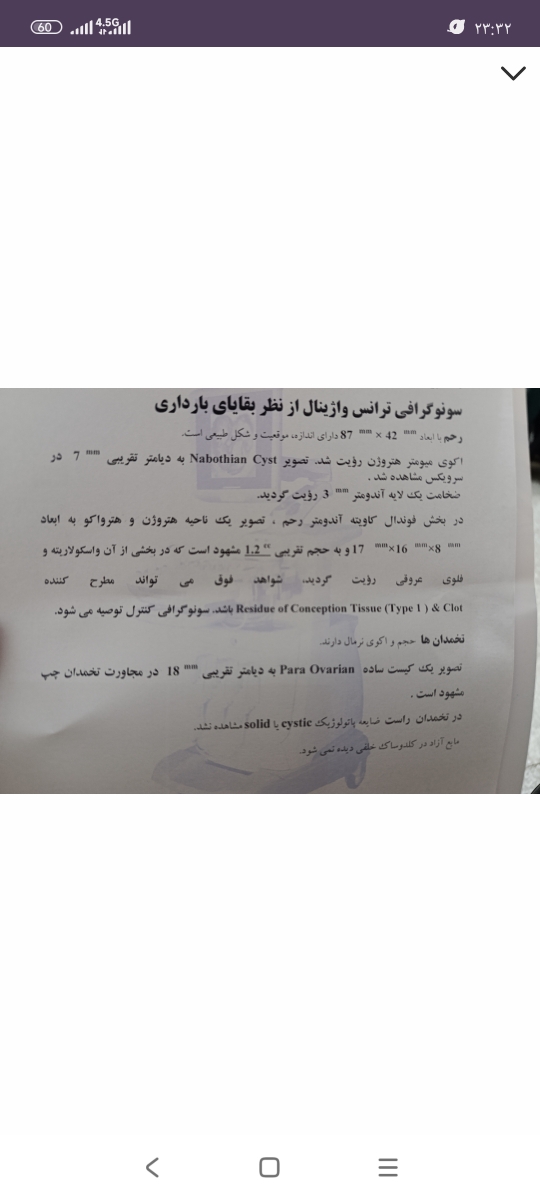 60 4.5G ۲۳:۳۲
سونوگرافی ترانس واژینال از نظر بقایای بارداری
رحم با ابعاد 87 mm × 42 mm دارای اندازه، موقعیت و شکل طبیعی است.
اکوی میومتر هتروژن رؤیت شد. تصویر Nabothian Cyst به دیامتر تقریبی 7 mm در
سرویکس مشاهده شد .
ضخامت یک لایه آندومتر 3 mm رؤیت گردید.
در بخش فوندال کاویته آندومتر رحم ، تصویر یک ناحیه هتروژن و هترواکو به ابعاد
17 mm×16 mm×8 mm و به حجم تقریبی 1.2 cc مشهود است که در بخشی از آن واسکولاریته و
فلوی عروقی رؤیت گردید. شواهد فوق می تواند مطرح کننده
Residue of Conception Tissue (Type 1 ) & Clot باشد. سونوگرافی کنترل توصیه می شود.
تخمدان ها حجم و اکوی نرمال دارند.
تصویر یک کیست ساده Para Ovarian به دیامتر تقریبی 18 mm در مجاورت تخمدان چپ
مشهود است .
در تخمدان راست ضایعه پاتولوژیک cystic یا solid مشاهده نشد.
مایع آزاد در کلدوساک خلفی دیده نمی شود.